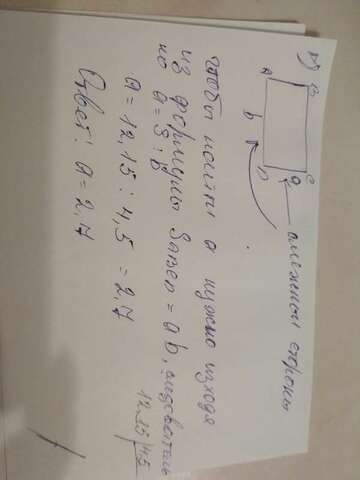 А В С D
a
b
смежной стороны
чтобы найти a нужно исходя
из формулы SАВСD = ab, следователь
но a = S : b
a = 12,15 : 4,5 = 2,7
12,15 4,5
Ответ: a = 2,7